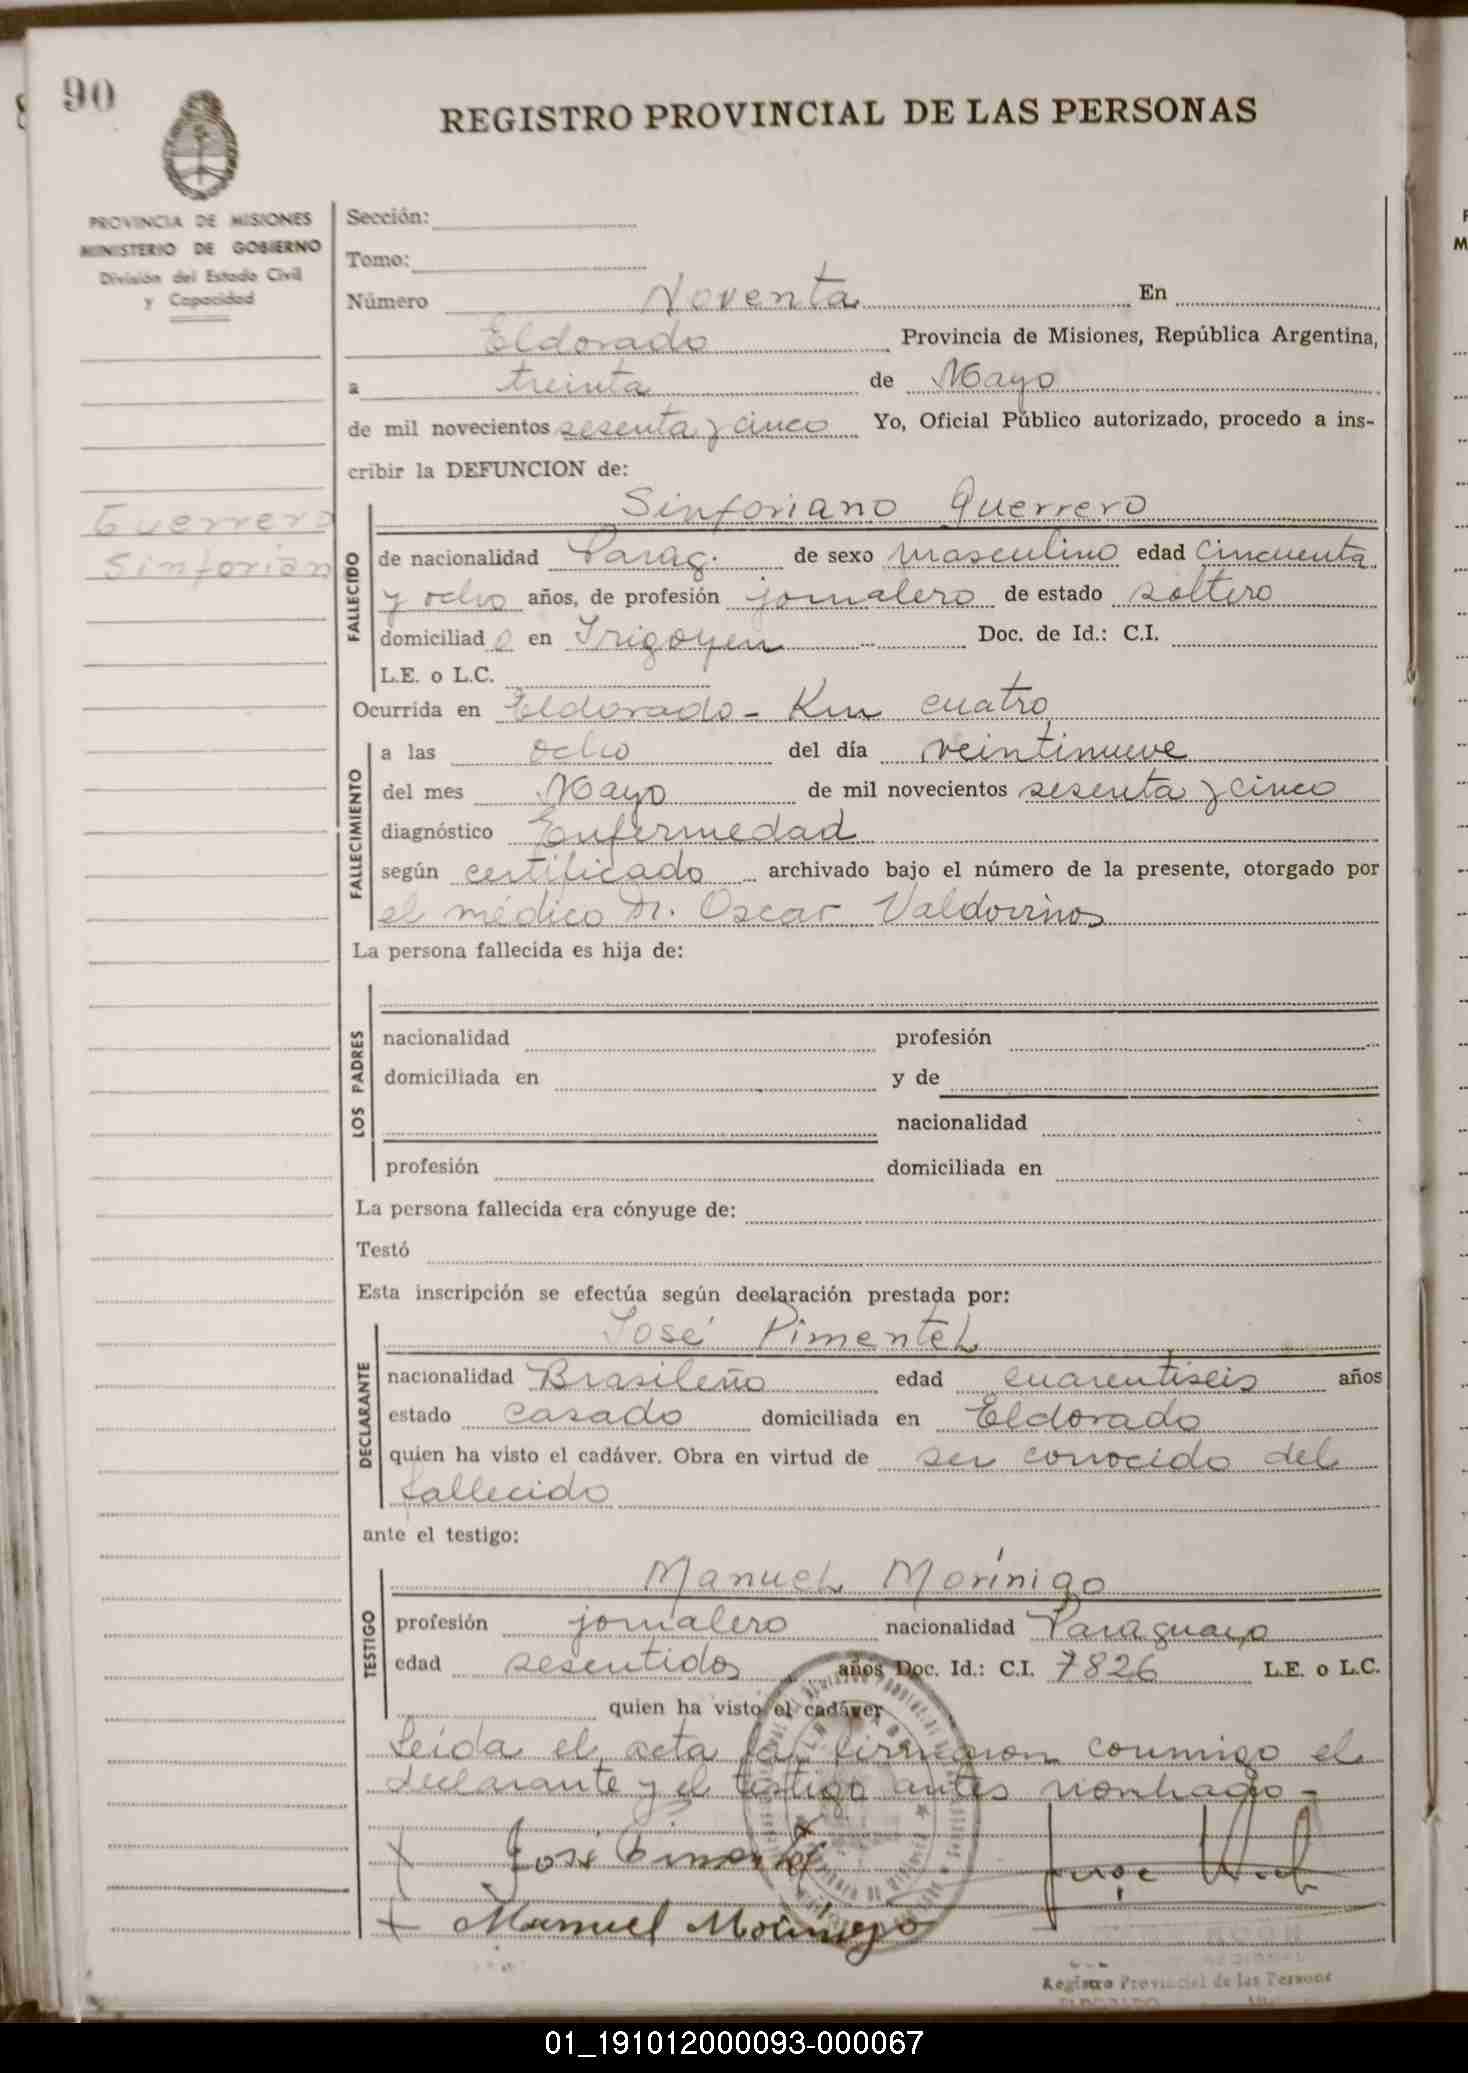 90
REGISTRO PROVINCIAL DE LAS PERSONAS
PROVINCIA DE MISIONES
MINISTERIO DE GOBIERNO
División del Estado Civil
y Capacidad
Guerrero
Sinforian
Sección:
Tomo:
Número Noventa En
Eldorado Provincia de Misiones, República Argentina,
a treinta de Mayo
de mil novecientos sesenta y cinco Yo, Oficial Público autorizado, procedo a ins-
cribir la DEFUNCION de:
Sinforiano Guerrero
FALLECIDO
de nacionalidad Parag. de sexo masculino edad cincuenta
y ocho años, de profesión jornalero de estado soltero
domiciliado en Irigoyen Doc. de Id.: C.I.
L.E. o L.C.
Ocurrida en Eldorado - Km cuatro
FALLECIMIENTO
a las ocho del día veintinueve
del mes Mayo de mil novecientos sesenta y cinco
diagnóstico Enfermedad
según certificado archivado bajo el número de la presente, otorgado por
el médico Dr. Oscar Valdovinos
La persona fallecida es hija de:
LOS PADRES
nacionalidad profesión
domiciliada en y de
nacionalidad
profesión domiciliada en
La persona fallecida era cónyuge de:
Testó
Esta inscripción se efectúa según declaración prestada por:
José Pimentel
DECLARANTE
nacionalidad Brasileño edad cuarentiseis años
estado casado domiciliada en Eldorado
quien ha visto el cadáver. Obra en virtud de ser conocido del
fallecido
ante el testigo:
Manuel Morínigo
TESTIGO
profesión jornalero nacionalidad Paraguayo
edad sesentidos años Doc. Id.: C.I. 7826 L.E. o L.C.
quien ha visto el cadáver
Leída el acta la firmaron conmigo el
declarante y el testigo antes nombrado -
José Pimentel
Manuel Morínigo
Registro Provincial de las Personas
ELDORADO
01_191012000093-000067